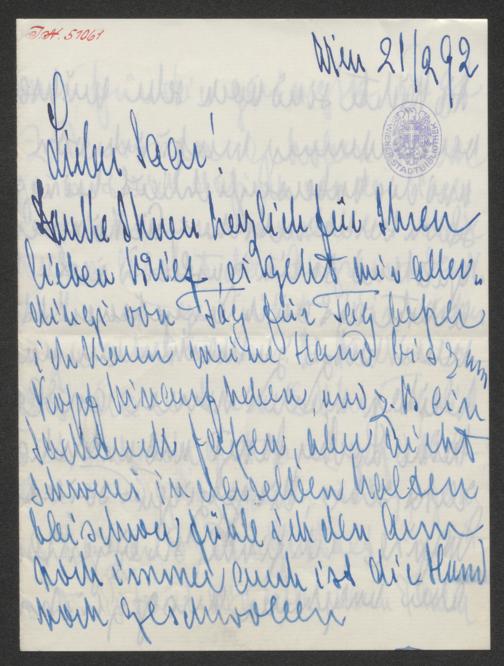 J.N. 51061
Wien 21/2 92
Lieber Saar!
Danke Ihnen herzlich für Ihren
lieben Brief, es geht mir aller„
dings von Tag für Tag besser
ich kann meine Hand bis zum
Kopf hinauf heben, und z. B ein
fassen, aber nicht
schweres in derselben halten
bleischwer fühle ich den Arm
noch immer auch ist die Hand
noch geschwollen